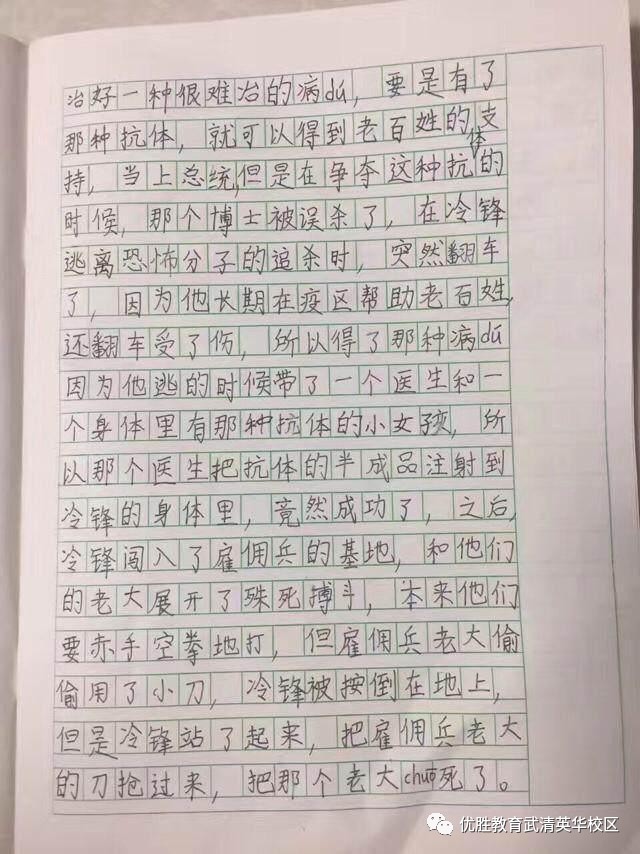 治好一种很难治的病dú,要是有了
那种抗体,就可以得到老百姓的支
持,当上总统,但是在争夺这种抗体的
时候,那个博士被误杀了,在冷锋
逃离恐怖分子的追杀时,突然翻车
了,因为他长期在疫区帮助老百姓,
还翻车受了伤,所以得了那种病dú
因为他逃的时候带了一个医生和一
个身体里有那种抗体的小女孩,所
以那个医生把抗体的半成品注射到
冷锋的身体里,竟然成功了,之后,
冷锋闯入了雇佣兵的基地,和他们
的老大展开了殊死搏斗,本来他们
要赤手空拳地打,但雇佣兵老大偷
偷用了小刀,冷锋被按倒在地上,
但是冷锋站了起来,把雇佣兵老大
的刀抢过来,把那个老大chuō死了。
优胜教育武清英华校区